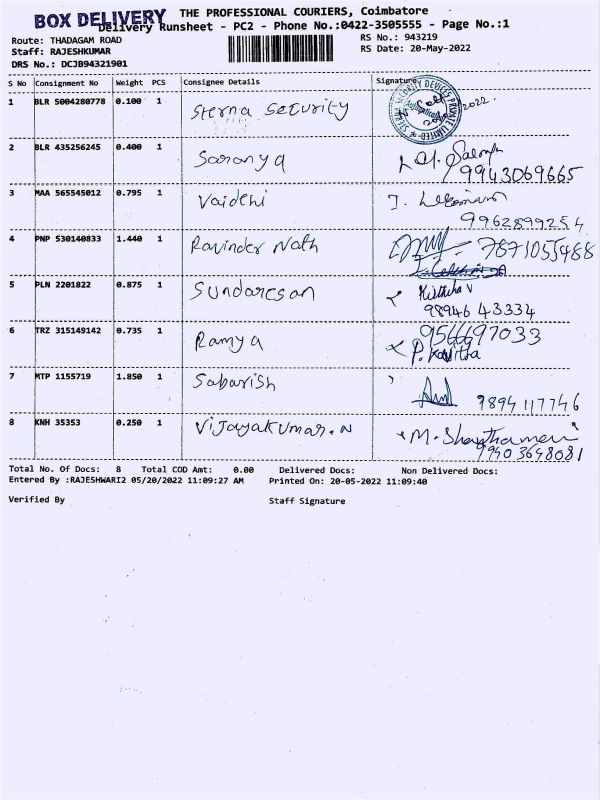 BOX DELIVERY THE PROFESSIONAL COURIERS, Coimbatore
Delivery Runsheet - PC2 - Phone No.:0422-3505555 - Page No.:1
Route: THADAGAM ROAD RS No.: 943219
Staff: RAJESHKUMAR RS Date: 20-May-2022
DRS No.: DCJB94321901
S No Consignment No Weight PCS Consignee Details Signature
1 BLR 5004280778 0.100 1 Sterna Security 2022.
2 BLR 435256245 0.400 1 Saranya
9943069665
3 MAA 565545012 0.795 1 Vaidehi
9962899254
4 PNP 530140833 1.440 1 Ravinder Nath 7871055488
5 PLN 2201822 0.875 1 Sundaresan Kirthika V
98946 43334
6 TRZ 315149142 0.735 1 Ramya 9566697033
P. Kavitha
7 MTP 1155719 1.850 1 Sabarish
9894117746
8 KNH 35353 0.250 1 Vijayakumar.N M.
99403648081
Total No. Of Docs: 8 Total COD Amt: 0.00 Delivered Docs: Non Delivered Docs:
Entered By :RAJESHWARI2 05/20/2022 11:09:27 AM Printed On: 20-05-2022 11:09:40
Verified By Staff Signature